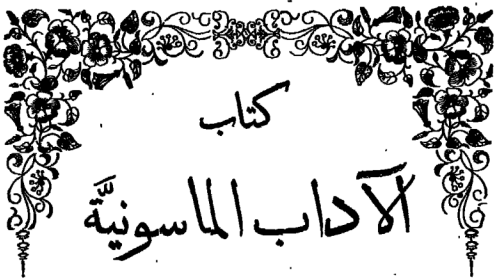 كتاب
الآداب الماسونيَّة